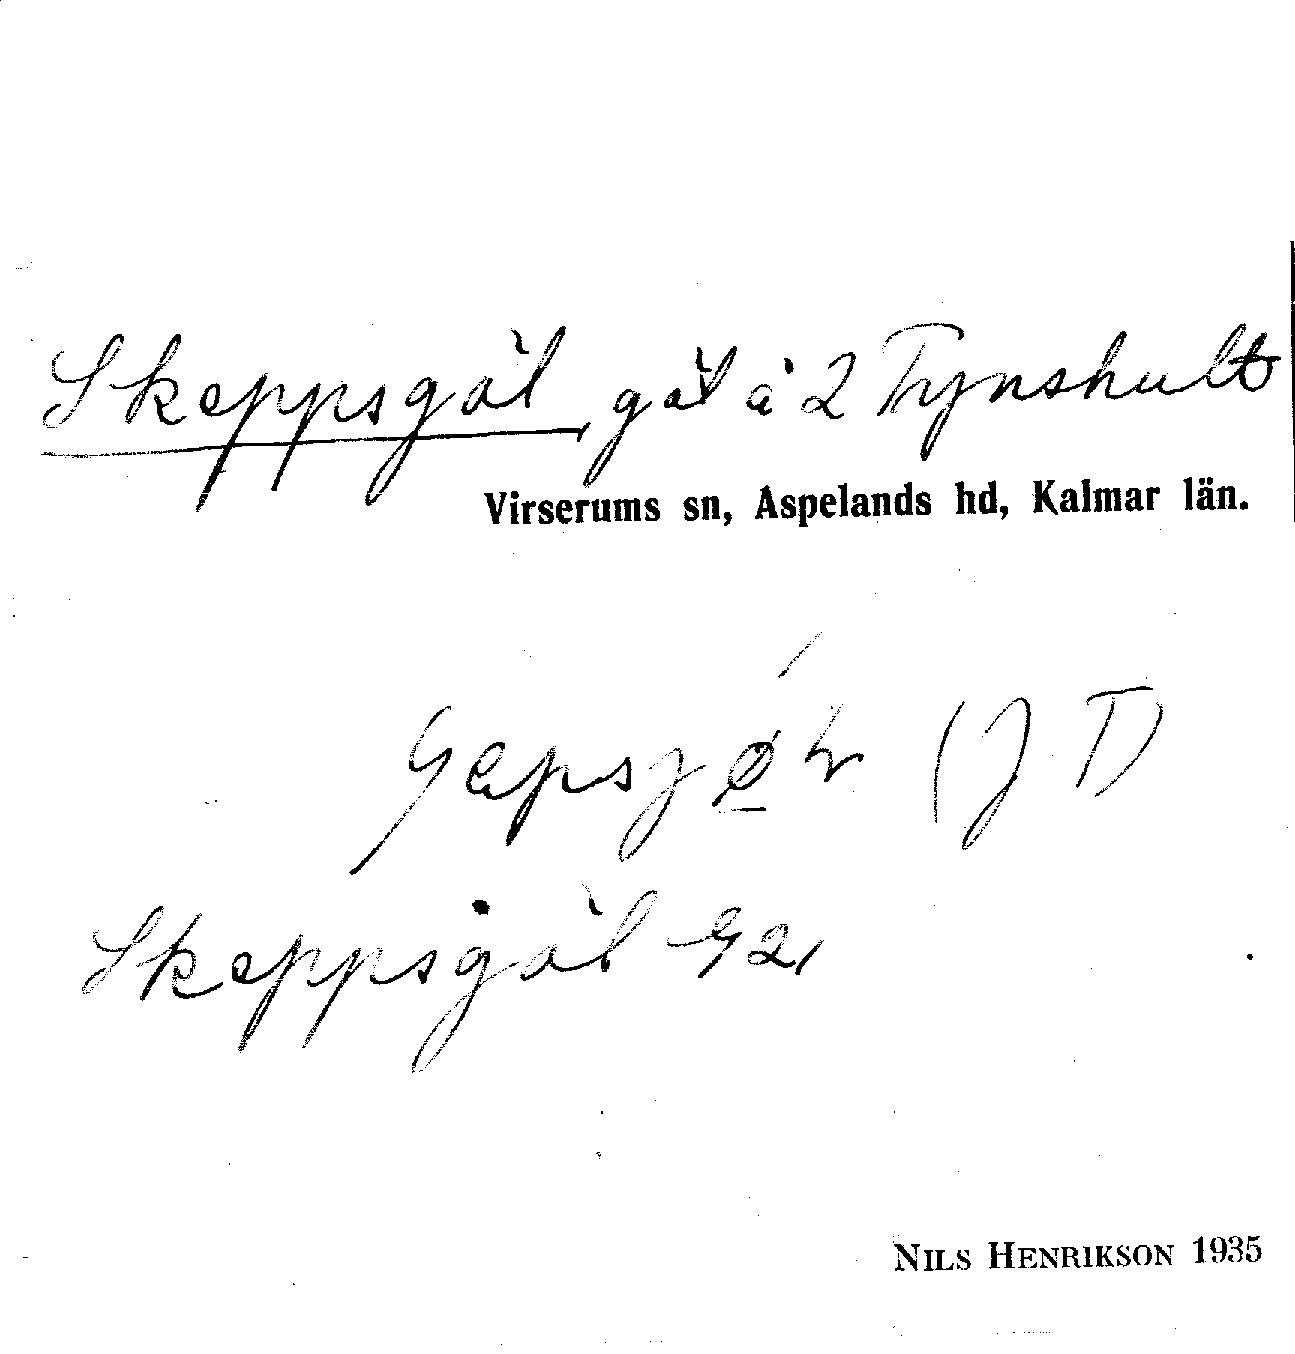 Skeppsgöl, göl å 2 Tynshult
Virserums sn, Aspelands hd, Kalmar län.
(J T)
Skeppsgöl G2,
NILS HENRIKSON 1935